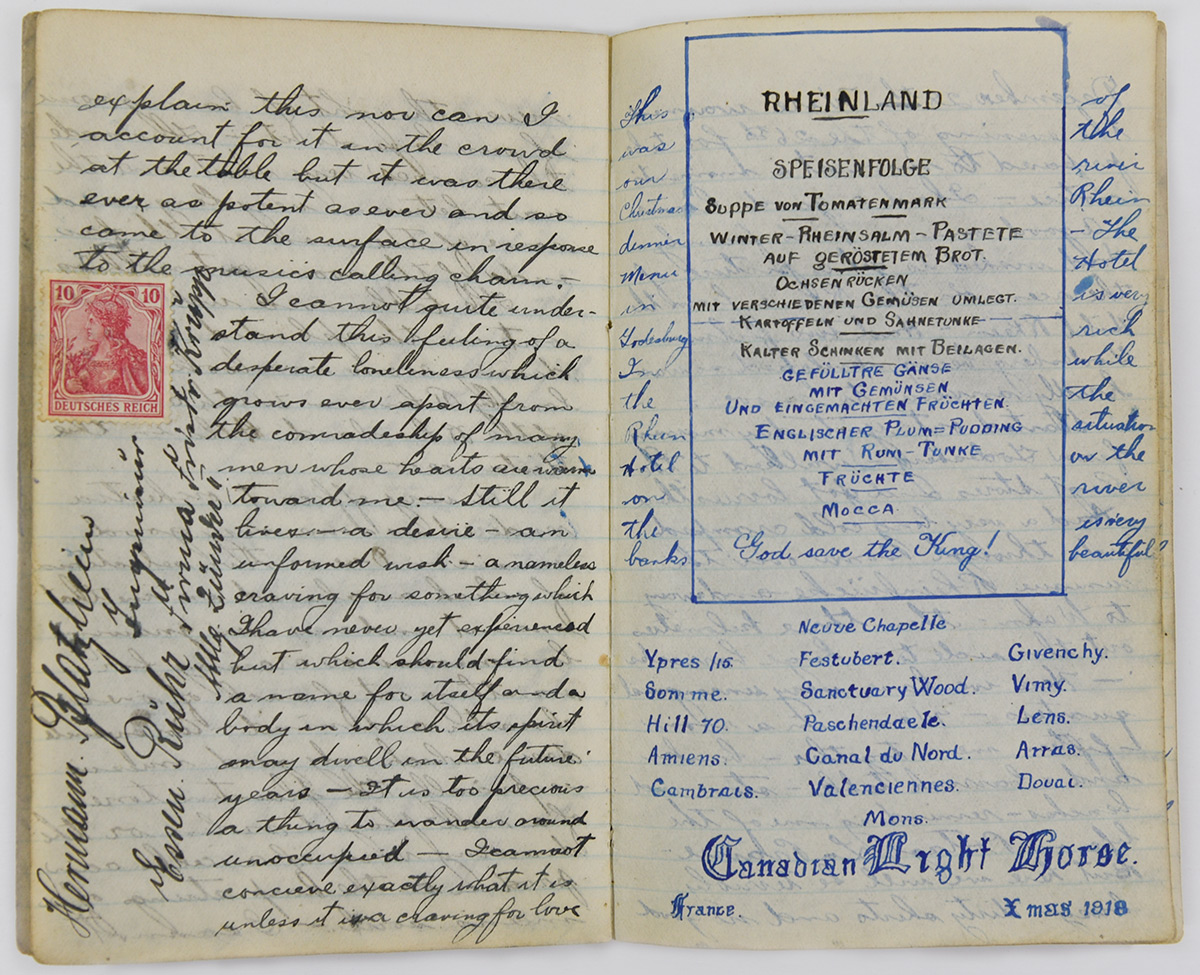 explain this nor can I
account for it in the crowd
at the table but it was there
ever as potent as ever and so
came to the surface in response
to the musics calling charm.
I cannot quite under-
stand this feeling of a
desperate loneliness which
grows ever apart from
the comradeship of many
men whose hearts are warm
toward me — still it
lives — a desire — an
unformed wish — a nameless
craving for something which
I have never yet experienced
but which should find
a name for itself and a
body in which its spirit
may dwell in the future
years — It is too precious
a thing to wander around
unoccupied — I cannot
concieve exactly what it is
unless it is a craving for love
10 10
DEUTSCHES REICH
Hermann
Ingenieur
Essen Ruhr
This
was
our
Christmas
dinner
Menu
in
Godesburg
In
the
Rhein
Hotel
on
the
banks
RHEINLAND
SPEISENFOLGE
SUPPE VON TOMATENMARK
WINTER-RHEINSALM-PASTETE
AUF GERÖSTETEM BROT.
OCHSENRÜCKEN
MIT VERSCHIEDENEN GEMÜSEN UMLEGT.
KARTOFFELN UND SAHNETUNKE
KALTER SCHINKEN MIT BEILAGEN.
GEFÜLLTRE GÄNSE
MIT GEMÜNSEN
UND EINGEMACHTEN FRÜCHTEN
ENGLISCHER PLUM=PUDDING
MIT RUM-TUNKE
FRÜCHTE
MOCCA.
God save the King!
of
the
river
Rhein
- The
Hotel
is very
rich
while
the
situation
on the
river
is very
beautiful?
Neuve Chapelle
Ypres /15. Festubert. Givenchy.
Somme. Sanctuary Wood. Vimy.
Hill 70. Paschendaele. Lens.
Amiens. Canal du Nord. Arras.
Cambrais. Valenciennes. Douai.
Mons.
Canadian Light Horse.
France. Xmas 1918